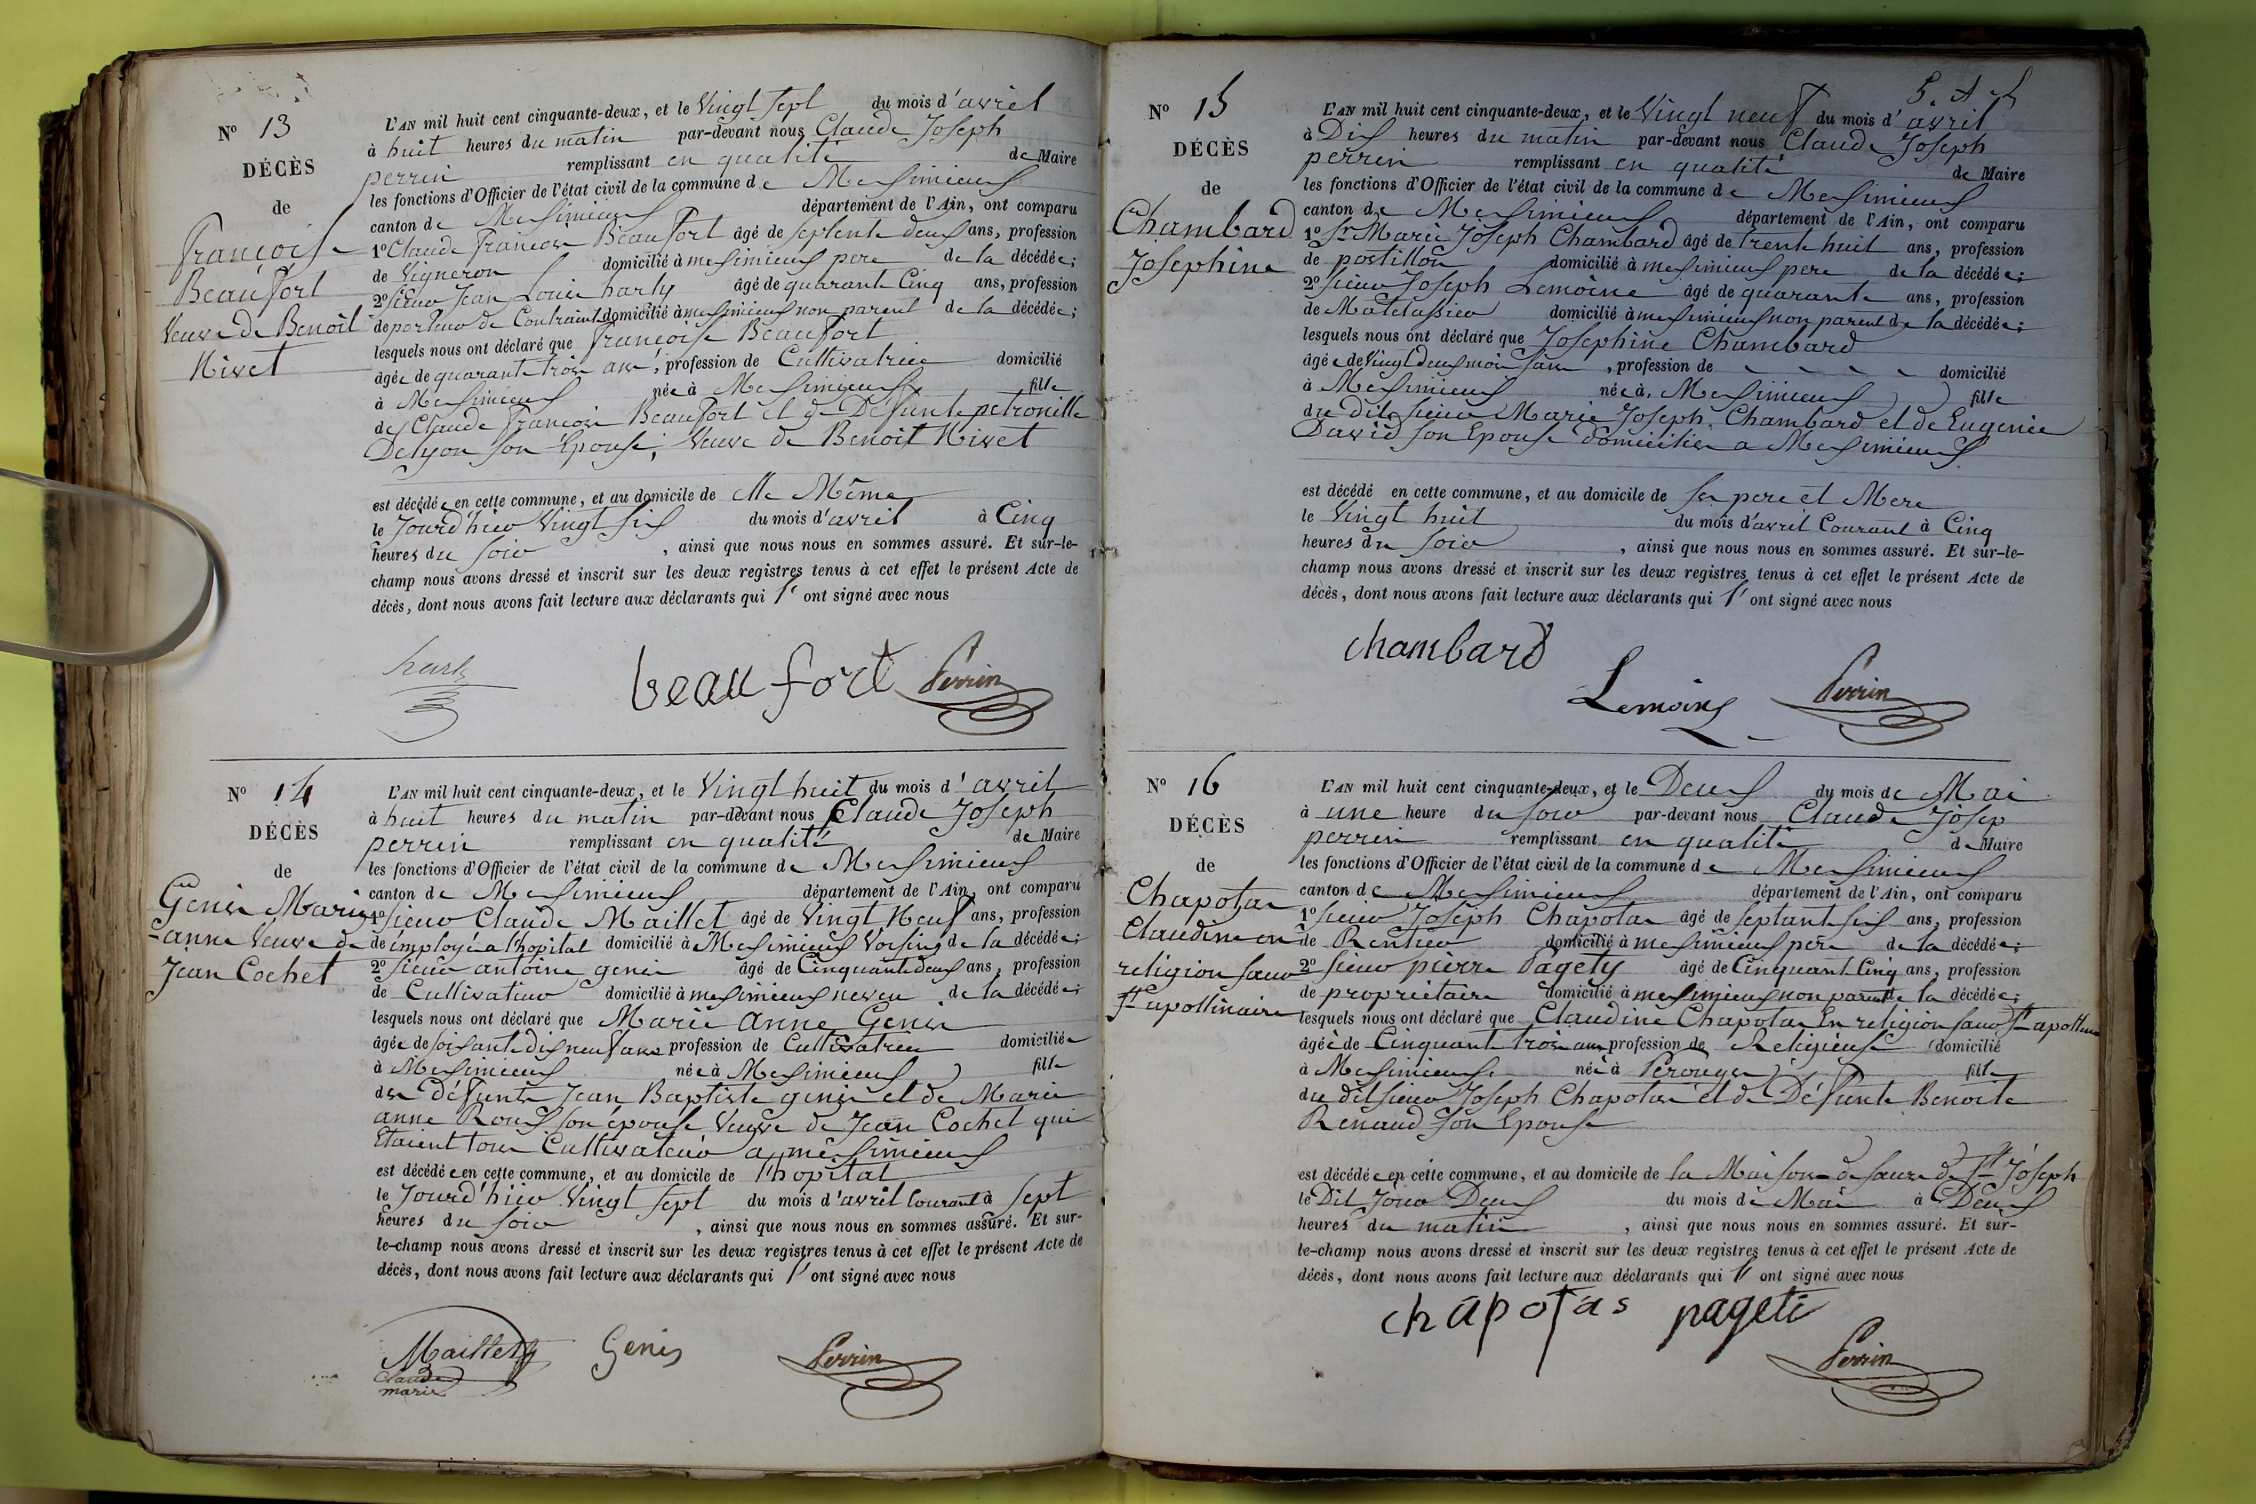 N° 13
DÉCÈS
de
Françoise
Beaufort
Veuve de Benoit
Nivet
L'AN mil huit cent cinquante-deux, et le Vingt Sept du mois d'avril
à huit heures du matin par-devant nous Claude Joseph
perrin remplissant en qualité de Maire
les fonctions d'Officier de l'état civil de la commune de Meximieux
canton de Meximieux département de l'Ain, ont comparu
1° Claude françois Beaufort âgé de septente deux ans, profession
de Vigneron domicilié à meximieux pere de la décédée;
2° sieur Jean Louis harly âgé de quarante Cinq ans, profession
de porteur de Contraint domicilié à meximieux non parent de la décédée;
lesquels nous ont déclaré que françoise Beaufort
âgée de quarante trois ans, profession de Cultivatrice domicilié
à Meximieux née à Meximieux fille
de Claude françois Beaufort et de Défunte petronille
Delyon son Epouse, Veuve de Benoit Nivet
est décédée en cette commune, et au domicile de elle Même
le Jourd'hier Vingt six du mois d'avril à Cinq
heures du soir , ainsi que nous nous en sommes assuré. Et sur-le-
champ nous avons dressé et inscrit sur les deux registres tenus à cet effet le présent Acte de
décès, dont nous avons fait lecture aux déclarants qui l'ont signé avec nous
harly beaufort Perrin
N° 14
DÉCÈS
de
Genis Marie
-anne Veuve de
Jean Cochet
L'AN mil huit cent cinquante-deux, et le Vingt huit du mois d'avril
à huit heures du matin par-devant nous Claude Joseph
perrin remplissant en qualité de Maire
les fonctions d'Officier de l'état civil de la commune de Meximieux
canton de Meximieux département de l'Ain, ont comparu
1° sieur Claude Maillet âgé de Vingt Neuf ans, profession
de employé a l'hopital domicilié à Meximieux Voisin de la décédée;
2° sieur antoine genis âgé de Cinquante deux ans, profession
de Cultivateur domicilié à meximieux neveu de la décédée;
lesquels nous ont déclaré que Marie anne Genis
âgée de soixante dix neuf ans profession de Cultivatrice domiciliée
à Meximieux née à Meximieux fille
des Défunts Jean Baptiste genis et de Marie
anne Roux son épouse Veuve de Jean Cochet qui
Etaient tous Cultivateurs a meximieux
est décédée en cette commune, et au domicile de l'hopital
le Jourd'hier Vingt sept du mois d'avril Courant à sept
heures du soir , ainsi que nous nous en sommes assuré. Et sur-
le-champ nous avons dressé et inscrit sur les deux registres tenus à cet effet le présent Acte de
décès, dont nous avons fait lecture aux déclarants qui l'ont signé avec nous
Maillet Genis Perrin
Claude
marie
N° 15
DÉCÈS
de
Chambard
Josephine
L'AN mil huit cent cinquante-deux, et le Vingt neuf du mois d'avril
à Dix heures du matin par-devant nous Claude Joseph
perrin remplissant en qualité de Maire
les fonctions d'Officier de l'état civil de la commune de Meximieux
canton de Meximieux département de l'Ain, ont comparu
1° Sr Marie Joseph Chambard âgé de trente huit ans, profession
de postillon domicilié à meximieux pere de la décédée;
2° sieur Joseph Lemoine âgé de quarante ans, profession
de Matelassier domicilié à meximieux non parent de la décédée;
lesquels nous ont déclaré que Josephine Chambard
âgée de Vingt deux mois , profession de domicilié
à Meximieux née à Meximieux fille
du dit sieur Marie Joseph Chambard et de Eugenie
David son Epouse domiciliés a Meximieux
est décédé en cette commune, et au domicile de ses pere et Mere
le Vingt huit du mois d'avril Courant à Cinq
heures du soir , ainsi que nous nous en sommes assuré. Et sur-le-
champ nous avons dressé et inscrit sur les deux registres tenus à cet effet le présent Acte de
décès, dont nous avons fait lecture aux déclarants qui l'ont signé avec nous
chambard
Lemoine Perrin
N° 16
DÉCÈS
de
Chapotas
Claudine en
religion sœur
St apollinaire
L'AN mil huit cent cinquante-deux, et le Deux du mois de Mai
à une heure du soir par-devant nous Claude Josep
perrin remplissant en qualité de Maire
les fonctions d'Officier de l'état civil de la commune de Meximieux
canton de Meximieux département de l'Ain, ont comparu
1° sieur Joseph Chapotas âgé de septant six ans, profession
de Rentier domicilié à meximieux père de la décédée;
2° sieur pierre Pagety âgé de Cinquant Cinq ans, profession
de propriétaire domicilié à meximieux non parent de la décédée;
lesquels nous ont déclaré que Claudine Chapotas En religion sœur St apollinaire
âgée de Cinquant trois ans profession de Religieuse domicilié
à Meximieux née à Pérouges fille
du dit sieur Joseph Chapotas et de Défunte Benoite
Renaud son Epouse
est décédée en cette commune, et au domicile de la Maison de sœurs de St Joseph
le Dit Jour Deux du mois de Mai à Deux
heures du matin , ainsi que nous nous en sommes assuré. Et sur-
le-champ nous avons dressé et inscrit sur les deux registres tenus à cet effet le présent Acte de
décès, dont nous avons fait lecture aux déclarants qui l'ont signé avec nous
chapotas pageti
Perrin